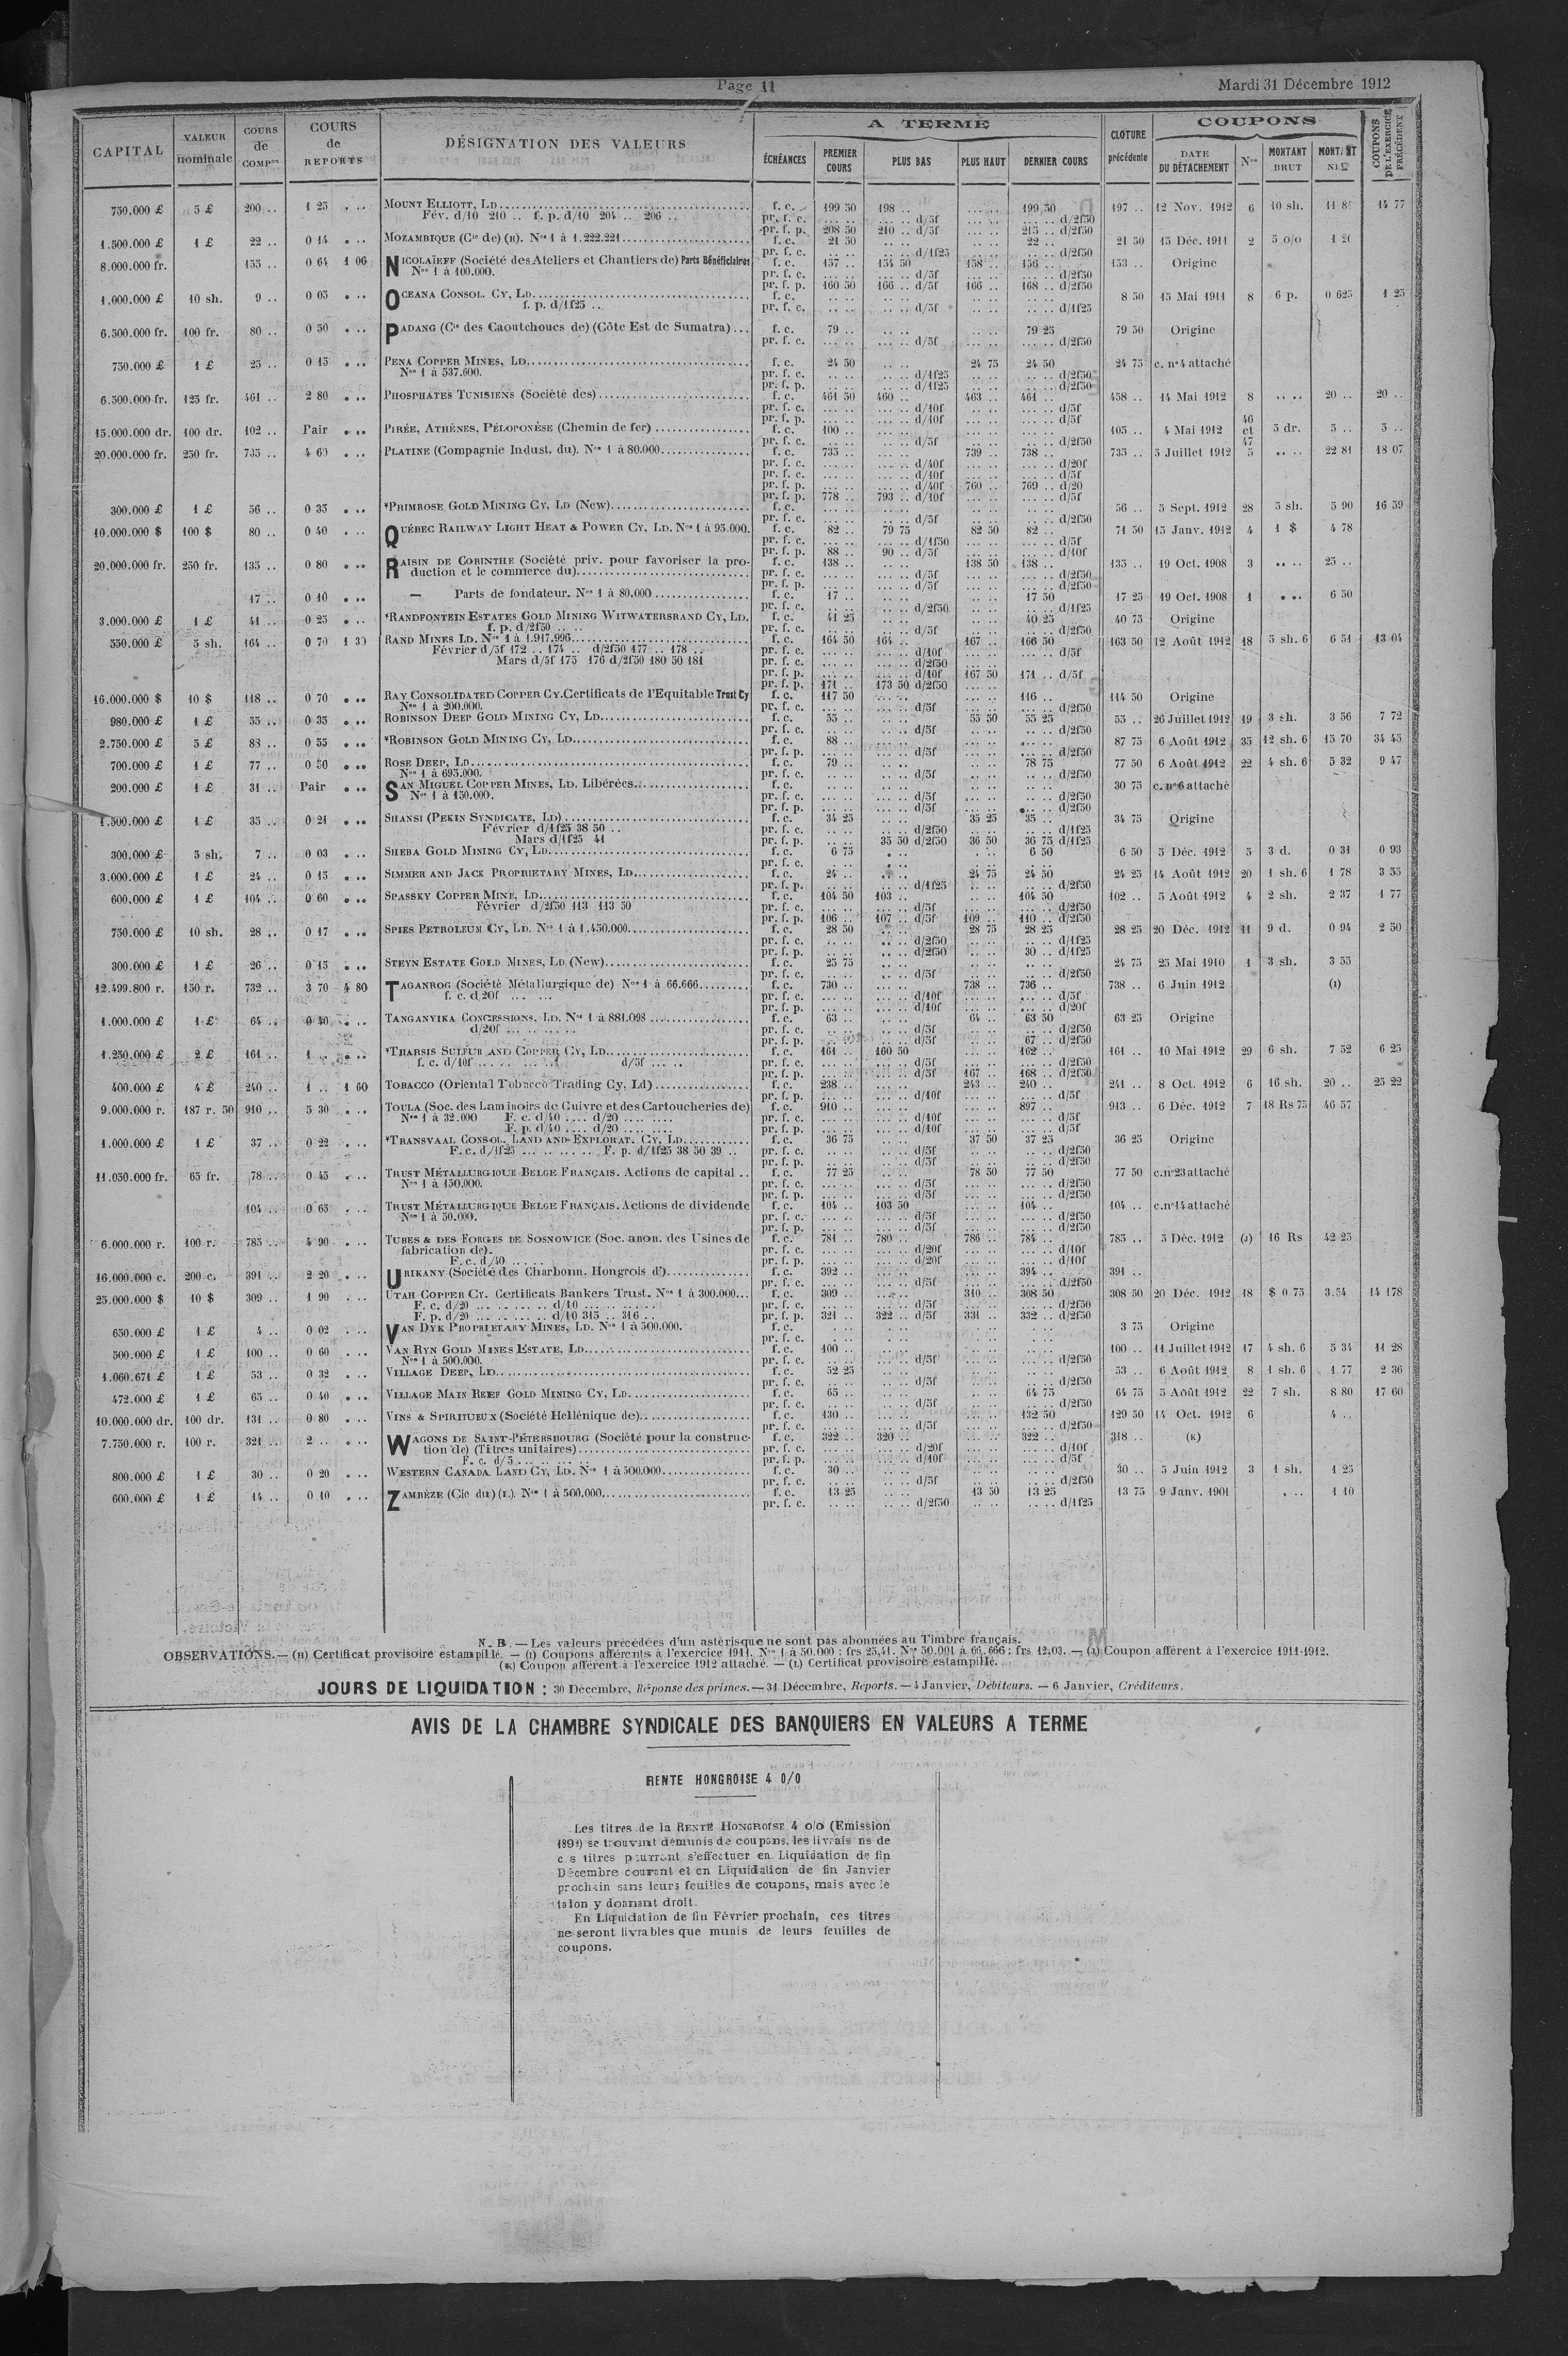 Page 11
Mardi 31 Décembre 1912
CAPITAL
VALEUR nominale
COURS de COMPon
COURS de REPORTS
DÉSIGNATION DES VALEURS
A TERME
ÉCHÉANCES
PREMIER COURS
PLUS BAS
PLUS HAUT
DERNIER COURS
CLOTURE précédente
COUPONS
DATE DU DÉTACHEMENT
Nos
MONTANT BRUT
COUPONS DE L'EXERCICE PRÉCÉDENT
750.000 £ 5 £ 200 .. 1 25 . .. MOUNT ELLIOTT, LD f. c. 199 50 198 .. ... .. 199 50 197 .. 12 Nov. 1912 6 10 sh. 14 77
Fév. d/10 210 .. f. p. d/10 204 .. 206 .. pr. f. c. ... .. ... .. d/5f ... .. ... .. d/2f50
pr. f. p. 208 50 210 .. d/5f ... .. 215 .. d/2f50
1.500.000 £ 1 £ 22 .. 0 14 . .. MOZAMBIQUE (Cie de) (H). Nos 1 à 1.222.221 f. c. 21 50 22 .. 21 50 15 Déc. 1911 2 5 o/o
pr. f. c. .. .. .. .. d/1f25 .. .. d/2f50
8.000.000 fr. 155 .. 0 64 1 06 NICOLAÏEFF (Société des Ateliers et Chantiers de) Parts Bénéficiaires f. c. 157 .. 154 50 158 .. 156 .. 153 .. Origine
Nos 1 à 100.000. pr. f. c. ... .. ... .. d/5f ... .. ... .. d/2f50
pr. f. p. 160 50 166 .. d/5f 166 .. 168 .. d/2f50
1.000.000 £ 10 sh. 9 .. 0 05 . .. OCEANA CONSOL. CY, LD f. c. .. .. .. .. .. .. .. .. 8 50 15 Mai 1911 8 6 p. 0 625 1 25
f. p. d/1f25 .. pr. f. c. .. .. .. .. d/5f .. .. .. .. d/1f25
6.500.000 fr. 100 fr. 80 .. 0 50 . .. PADANG (Cie des Caoutchoucs de) (Côte Est de Sumatra) f. c. 79 .. .. .. .. .. 79 25 79 50 Origine
pr. f. c. ... .. ... .. d/5f ... .. ... .. d/2f50
750.000 £ 1 £ 25 .. 0 15 . .. PENA COPPER MINES, LD f. c. 24 50 .. .. 24 75 24 50 24 75 c. no 4 attaché
Nos 1 à 537.600. pr. f. c. .. .. .. .. d/1f25 .. .. .. .. d/2f50
pr. f. p. .. .. .. .. d/1f25 .. .. .. .. d/2f50
6.500.000 fr. 125 fr. 461 .. 2 80 . .. PHOSPHATES TUNISIENS (Société des) f. c. 461 50 460 .. 463 .. 461 .. 458 .. 14 Mai 1912 8 .. .. 20 .. 20 ..
pr. f. c. ... .. ... .. d/10f ... .. ... .. d/5f
pr. f. p. ... .. ... .. d/10f ... .. ... .. d/5f
15.000.000 dr. 100 dr. 102 .. Pair . .. PIRÉE, ATHÈNES, PÉLOPONÈSE (Chemin de fer) f. c. 100 .. 105 .. 4 Mai 1912 46 et 47 5 dr. 5 .. 5 ..
pr. f. c. ... .. ... .. d/5f ... .. ... .. d/2f50
20.000.000 fr. 250 fr. 735 .. 4 60 . .. PLATINE (Compagnie Indust. du). Nos 1 à 80.000 f. c. 735 .. ... .. 739 .. 738 .. 735 .. 5 Juillet 1912 5 .. .. 22 81 18 07
pr. f. c. ... .. ... .. d/40f ... .. d/20f
pr. f. c. ... .. ... .. d/10f ... .. d/5f
pr. f. p. ... .. ... .. d/40f 760 .. 769 .. d/20
pr. f. p. 778 .. 793 .. d/10f ... .. d/5f
300.000 £ 1 £ 56 .. 0 35 . .. *PRIMROSE GOLD MINING CY, LD (New) f. c. 56 .. 5 Sept. 1912 28 5 sh. 5 90 16 59
pr. f. c. .. .. .. .. d/5f .. .. .. .. d/2f50
10.000.000 $ 100 $ 80 .. 0 40 . .. QUÉBEC RAILWAY LIGHT HEAT & POWER CY, LD. Nos 1 à 95.000. f. c. 82 .. 79 75 82 50 82 .. 71 50 15 Janv. 1912 4 1 $ 4 78
pr. f. c. ... .. ... .. d/1f50 ... .. d/5f
pr. f. p. 88 .. 90 .. d/5f ... .. d/10f
20.000.000 fr. 250 fr. 135 .. 0 80 . .. RAISIN DE CORINTHE (Société priv. pour favoriser la pro- f. c. 138 .. ... .. 138 50 138 .. 135 .. 19 Oct. 1908 3 .. .. 25 ..
duction et le commerce du) pr. f. c. ... .. ... .. d/5f ... .. d/2f50
pr. f. p. ... .. ... .. d/5f ... .. d/2f50
17 .. 0 10 . .. — Parts de fondateur. Nos 1 à 80.000 f. c. 17 .. .. .. .. .. 17 50 17 25 19 Oct. 1908 1 . .. 6 50
pr. f. c. .. .. .. .. d/2f50 .. .. d/1f25
3.000.000 £ 1 £ 41 .. 0 25 . .. *RANDFONTEIN ESTATES GOLD MINING WITWATERSRAND CY, LD. f. c. 41 25 .. .. .. .. 40 25 40 75 Origine
f. p. d/2f50 .. .. pr. f. c. .. .. .. .. d/5f .. .. d/2f50
550.000 £ 5 sh. 164 .. 0 70 1 30 RAND MINES LD. Nos 1 à 1.917.996 f. c. 164 50 164 .. 167 .. 166 50 163 50 12 Août 1912 18 5 sh. 6 6 51 13 04
Février d/5f 172 .. 174 .. d/2f50 177 .. 178 .. pr. f. c. ... .. ... .. d/10f ... .. d/5f
Mars d/5f 175 176 d/2f50 180 50 181 pr. f. c. ... .. ... .. d/2f50
pr. f. p. ... .. ... .. d/10f 167 50 171 .. d/5f
pr. f. p. 171 .. 173 50 d/2f50
16.000.000 $ 10 $ 118 .. 0 70 . .. RAY CONSOLIDATED COPPER CY. Certificats de l'Equitable Trust Cy f. c. 117 50 ... .. ... .. 116 .. 114 50 Origine
Nos 1 à 200.000. pr. f. c. ... .. ... .. d/5f ... .. d/2f50
980.000 £ 1 £ 55 .. 0 35 . .. ROBINSON DEEP GOLD MINING CY, LD f. c. 55 .. .. .. 55 50 55 25 55 .. 26 Juillet 1912 19 3 sh. 3 56 7 72
pr. f. c. .. .. .. .. d/5f .. .. d/2f50
2.750.000 £ 5 £ 88 .. 0 55 . .. *ROBINSON GOLD MINING CY, LD f. c. 88 .. 87 75 6 Août 1912 35 12 sh. 6 15 70 34 45
pr. f. p. ... .. ... .. d/5f ... .. d/2f50
700.000 £ 1 £ 77 .. 0 50 . .. ROSE DEEP, LD f. c. 79 .. .. .. .. .. 78 75 77 50 6 Août 1912 22 4 sh. 6 5 32 9 47
Nos 1 à 695.000. pr. f. c. .. .. .. .. d/5f .. .. d/2f50
200.000 £ 1 £ 31 .. Pair . .. SAN MIGUEL COPPER MINES, LD. Libérées f. c. 30 75 c. no 6 attaché
Nos 1 à 150.000. pr. f. c. ... .. ... .. d/5f ... .. d/2f50
pr. f. p. ... .. ... .. d/5f ... .. d/2f50
1.500.000 £ 1 £ 35 .. 0 21 . .. SHANSI (PEKIN SYNDICATE, LD) f. c. 34 25 .. .. 35 25 35 .. 34 75 Origine
Février d/1f25 38 50 .. pr. f. c. .. .. .. .. d/2f50 .. .. d/1f25
Mars d/1f25 41 pr. f. p. .. .. 35 50 d/2f50 36 50 36 75 d/1f25
300.000 £ 5 sh. 7 .. 0 03 . .. SHEBA GOLD MINING CY, LD f. c. 6 75 . .. . .. 6 50 6 50 5 Déc. 1912 5 3 d. 0 31 0 93
pr. f. c. .. .. . ..
3.000.000 £ 1 £ 24 .. 0 15 . .. SIMMER AND JACK PROPRIETARY MINES, LD f. c. 24 .. .. .. 24 75 24 50 24 25 14 Août 1912 20 1 sh. 6 1 78 3 55
pr. f. p. .. .. .. .. d/1f25 .. .. d/2f50
600.000 £ 1 £ 104 .. 0 60 . .. SPASSKY COPPER MINE, LD f. c. 104 50 103 .. .. .. 104 50 102 .. 5 Août 1912 4 2 sh. 2 37 1 77
Février d/2f50 113 113 50 pr. f. c. ... .. ... .. d/5f ... .. d/2f50
pr. f. p. 106 .. 107 .. d/5f 109 .. 110 .. d/2f50
750.000 £ 10 sh. 28 .. 0 17 . .. SPIES PETROLEUM CY, LD. Nos 1 à 1.450.000 f. c. 28 50 .. .. 28 75 28 25 28 25 20 Déc. 1912 11 9 d. 0 94 2 50
pr. f. c. .. .. .. .. d/2f50 .. .. d/1f25
pr. f. p. .. .. .. .. d/2f50 30 .. d/1f25
300.000 £ 1 £ 26 .. 0 15 . .. STEYN ESTATE GOLD MINES, LD (New) f. c. 25 75 .. .. .. .. .. .. 24 75 25 Mai 1910 1 3 sh. 3 55
pr. f. c. .. .. .. .. d/5f .. .. d/2f50
12.499.800 r. 150 r. 732 .. 3 70 4 80 TAGANROG (Société Métallurgique de) Nos 1 à 66.666 f. c. 730 .. ... .. 738 .. 736 .. 738 .. 6 Juin 1912 (I)
f. c. d/20f ... ... pr. f. c. ... .. ... .. d/10f ... .. d/5f
pr. f. p. ... .. ... .. d/10f ... .. d/20f
1.000.000 £ 1 £ 64 .. 0 40 . .. TANGANYIKA CONCESSIONS, LD. Nos 1 à 881.098 f. c. 63 .. .. .. 64 .. 63 50 63 25 Origine
d/20f ... .. .. .. pr. f. c. .. .. .. .. d/5f .. .. d/2f50
pr. f. p. .. .. .. .. d/5f 67 .. d/2f50
1.250.000 £ 2 £ 161 .. 1 .. . .. *THARSIS SULFUR AND COPPER CY, LD f. c. 161 .. 160 50 ... .. 162 .. 161 .. 10 Mai 1912 29 6 sh. 7 52 6 25
f. c. d/10f d/5f ... .. pr. f. c. ... .. ... .. d/5f ... .. d/2f50
pr. f. p. ... .. ... .. d/5f 167 .. 168 .. d/2f50
400.000 £ 4 £ 240 .. 1 .. 1 60 TOBACCO (Oriental Tobacco Trading Cy, Ld) f. c. 238 .. ... .. 243 .. 240 .. 241 .. 8 Oct. 1912 6 16 sh. 20 .. 25 22
pr. f. p. ... .. ... .. d/10f ... .. d/5f
9.000.000 r. 187 r. 50 910 .. 5 30 . .. TOULA (Soc. des Laminoirs de Cuivre et des Cartoucheries de) f. c. 910 .. ... .. ... .. 897 .. 913 .. 6 Déc. 1912 7 18 Rs 75 46 57
Nos 1 à 32.000 F. c. d/40 .... d/20 .... .... pr. f. c. ... .. ... .. d/10f ... .. d/5f
F. p. d/40 .... d/20 .... .... pr. f. p. ... .. ... .. d/10f ... .. d/5f
1.000.000 £ 1 £ 37 .. 0 22 . .. *TRANSVAAL CONSOL. LAND AND EXPLORAT. CY, LD f. c. 36 75 .. .. 37 50 37 25 36 25 Origine
F. c. d/1f25 ... .. ... .. F. p. d/1f25 38 50 39 .. pr. f. c. .. .. .. .. d/5f .. .. d/2f50
pr. f. p. .. .. .. .. d/5f .. .. d/2f50
11.050.000 fr. 65 fr. 78 .. 0 45 . .. TRUST MÉTALLURGIQUE BELGE FRANÇAIS. Actions de capital .. f. c. 77 25 .. .. 78 50 77 50 77 50 c. no 23 attaché
Nos 1 à 150.000. pr. f. c. ... .. ... .. d/5f ... .. d/2f50
pr. f. p. ... .. ... .. d/5f ... .. d/2f50
104 .. 0 65 . .. TRUST MÉTALLURGIQUE BELGE FRANÇAIS. Actions de dividende f. c. 104 .. 103 50 ... .. 104 .. 104 .. c. no 14 attaché
Nos 1 à 50.000. pr. f. c. ... .. ... .. d/5f ... .. d/2f50
pr. f. p. ... .. ... .. d/5f ... .. d/2f50
6.000.000 r. 100 r. 785 .. 4 90 . .. TUBES & DES FORGES DE SOSNOWICE (Soc. anon. des Usines de f. c. 781 .. 780 .. 786 .. 784 .. 785 .. 5 Déc. 1912 (J) 16 Rs 42 25
fabrication de). pr. f. c. ... .. ... .. d/20f ... .. d/10f
F. c. d/40 ... .. pr. f. p. ... .. ... .. d/20f ... .. d/10f
16.000.000 c. 200 c. 391 .. 2 20 . .. URIKANY (Société des Charbonn. Hongrois d') f. c. 392 .. ... .. ... .. 394 .. 391 ..
pr. f. c. ... .. ... .. d/5f ... .. d/2f50
25.000.000 $ 10 $ 309 .. 1 90 . .. UTAH COPPER CY. Certificats Bankers Trust. Nos 1 à 300.000 f. c. 309 .. ... .. 310 .. 308 50 308 50 20 Déc. 1912 18 $ 0 75 3.54 14 178
F. c. d/20 ... .. ... .. d/10 ... .. ... .. pr. f. c. ... .. ... .. d/5f ... .. d/2f50
F. p. d/20 ... .. ... .. d/10 315 .. 316 .. pr. f. p. 321 .. 322 .. d/5f 331 .. 332 .. d/2f50
650.000 £ 1 £ 4 .. 0 02 . .. VAN DYK PROPRIETARY MINES, LD. Nos 1 à 500.000. f. c. 3 75 Origine
pr. f. c.
500.000 £ 1 £ 100 .. 0 60 . .. VAN RYN GOLD MINES ESTATE, LD f. c. 100 .. 100 .. 11 Juillet 1912 17 4 sh. 6 5 34 11 28
Nos 1 à 500.000. pr. f. c. ... .. ... .. d/5f ... .. d/2f50
1.060.671 £ 1 £ 53 .. 0 32 . .. VILLAGE DEEP, LD f. c. 52 25 .. .. .. .. .. .. 53 .. 6 Août 1912 8 1 sh. 6 1 77 2 36
pr. f. c. .. .. .. .. d/5f .. .. d/2f50
472.000 £ 1 £ 65 .. 0 40 . .. VILLAGE MAIN REEF GOLD MINING CY, LD f. c. 65 .. .. .. .. .. 64 75 64 75 5 Août 1912 22 7 sh. 8 80 17 60
pr. f. c. .. .. .. .. d/5f .. .. d/2f50
10.000.000 dr. 100 dr. 131 .. 0 80 . .. VINS & SPIRITUEUX (Société Hellénique de) f. c. 130 .. ... .. ... .. 132 50 129 50 14 Oct. 1912 6 4 ..
pr. f. c. ... .. ... .. d/5f ... .. d/2f50
7.750.000 r. 100 r. 321 .. 2 .. . .. WAGONS DE SAINT-PÉTERSBOURG (Société pour la construc- f. c. 322 .. 320 .. ... .. 322 .. 318 .. (K)
tion de) (Titres unitaires) pr. f. c. ... .. ... .. d/20f ... .. d/10f
F. c. d/5 ... .. ... .. pr. f. p. ... .. ... .. d/10f ... .. d/5f
800.000 £ 1 £ 30 .. 0 20 . .. WESTERN CANADA LAND CY, LD. Nos 1 à 500.000 f. c. 30 .. .. .. .. .. .. .. 30 .. 5 Juin 1912 3 1 sh. 1 25
pr. f. c. .. .. .. .. d/5f .. .. d/2f50
600.000 £ 1 £ 14 .. 0 10 . .. ZAMBÈZE (Cie du) (L). Nos 1 à 500.000 f. c. 13 25 .. .. 13 50 13 25 13 75 9 Janv. 1901 . .. 1 10
pr. f. c. .. .. .. .. d/2f50 .. .. .. .. d/1f25
N. B. — Les valeurs précédées d'un astérisque ne sont pas abonnées au Timbre français.
OBSERVATIONS. — (H) Certificat provisoire estampillé. — (I) Coupons afférents à l'exercice 1911. Nos 1 à 50.000 : frs 25,41. Nos 50.001 à 66.666 : frs 12,03. — (J) Coupon afférent à l'exercice 1911-1912.
(K) Coupon afférent à l'exercice 1912 attaché. — (L) Certificat provisoire estampillé.
JOURS DE LIQUIDATION : 30 Décembre, Réponse des primes. — 31 Décembre, Reports. — 4 Janvier, Débiteurs. — 6 Janvier, Créditeurs.
AVIS DE LA CHAMBRE SYNDICALE DES BANQUIERS EN VALEURS A TERME
RENTE HONGROISE 4 0/0
Les titres de la RENTE HONGROISE 4 o/o (Emission
se trouvant démunis de coupons, les livrais ns de
c s titres pourront s'effectuer en Liquidation de fin
Décembre courant et en Liquidation de fin Janvier
prochain sans leurs feuilles de coupons, mais avec le
talon y donnant droit.
En Liquidation de fin Février prochain, ces titres
ne seront livrables que munis de leurs feuilles de
coupons.